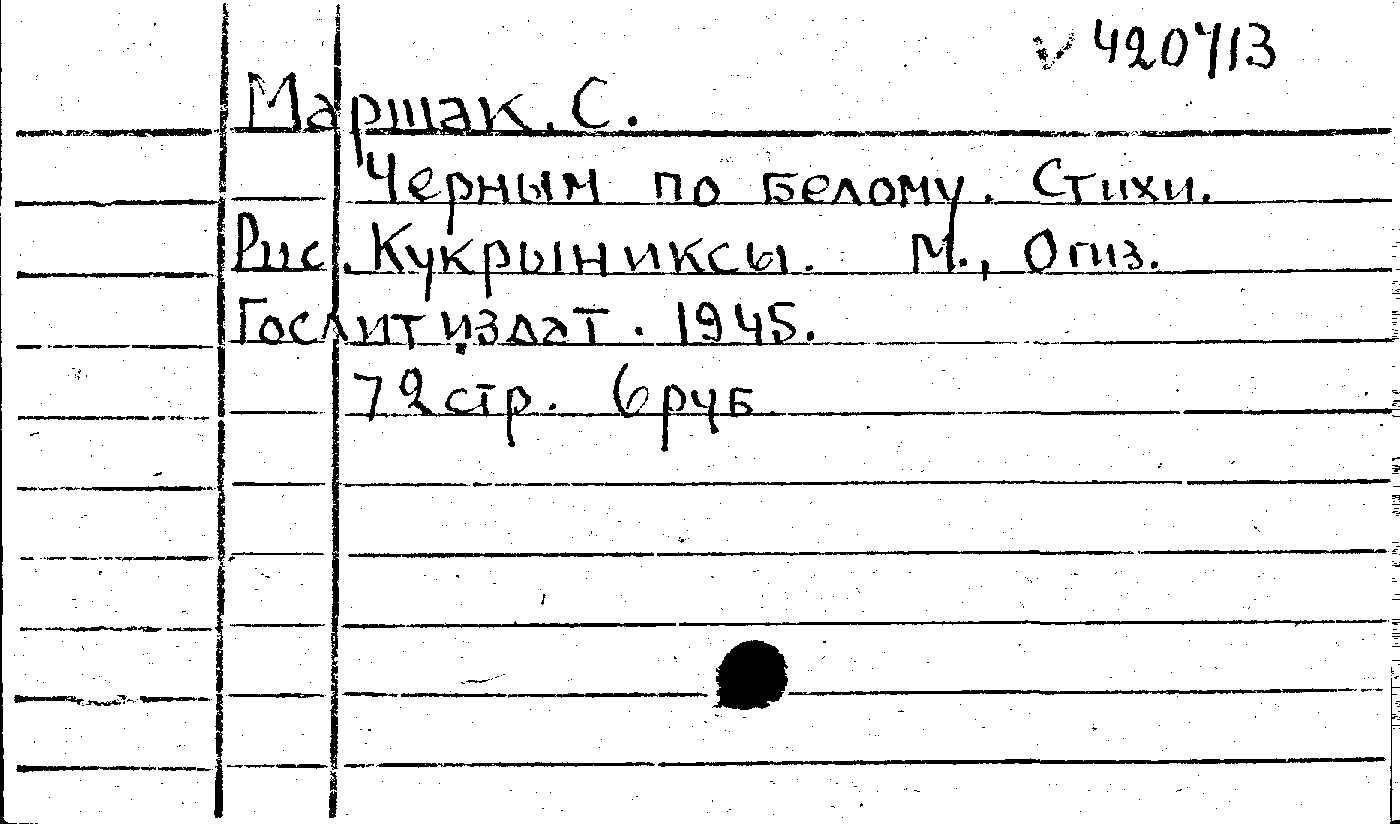 v 420713
Маршак. С.
Черным по белому. Стихи.
Рис. Кукрыниксы. М., Огиз.
Гослитиздат. 1945.
72 стр. 6 руб